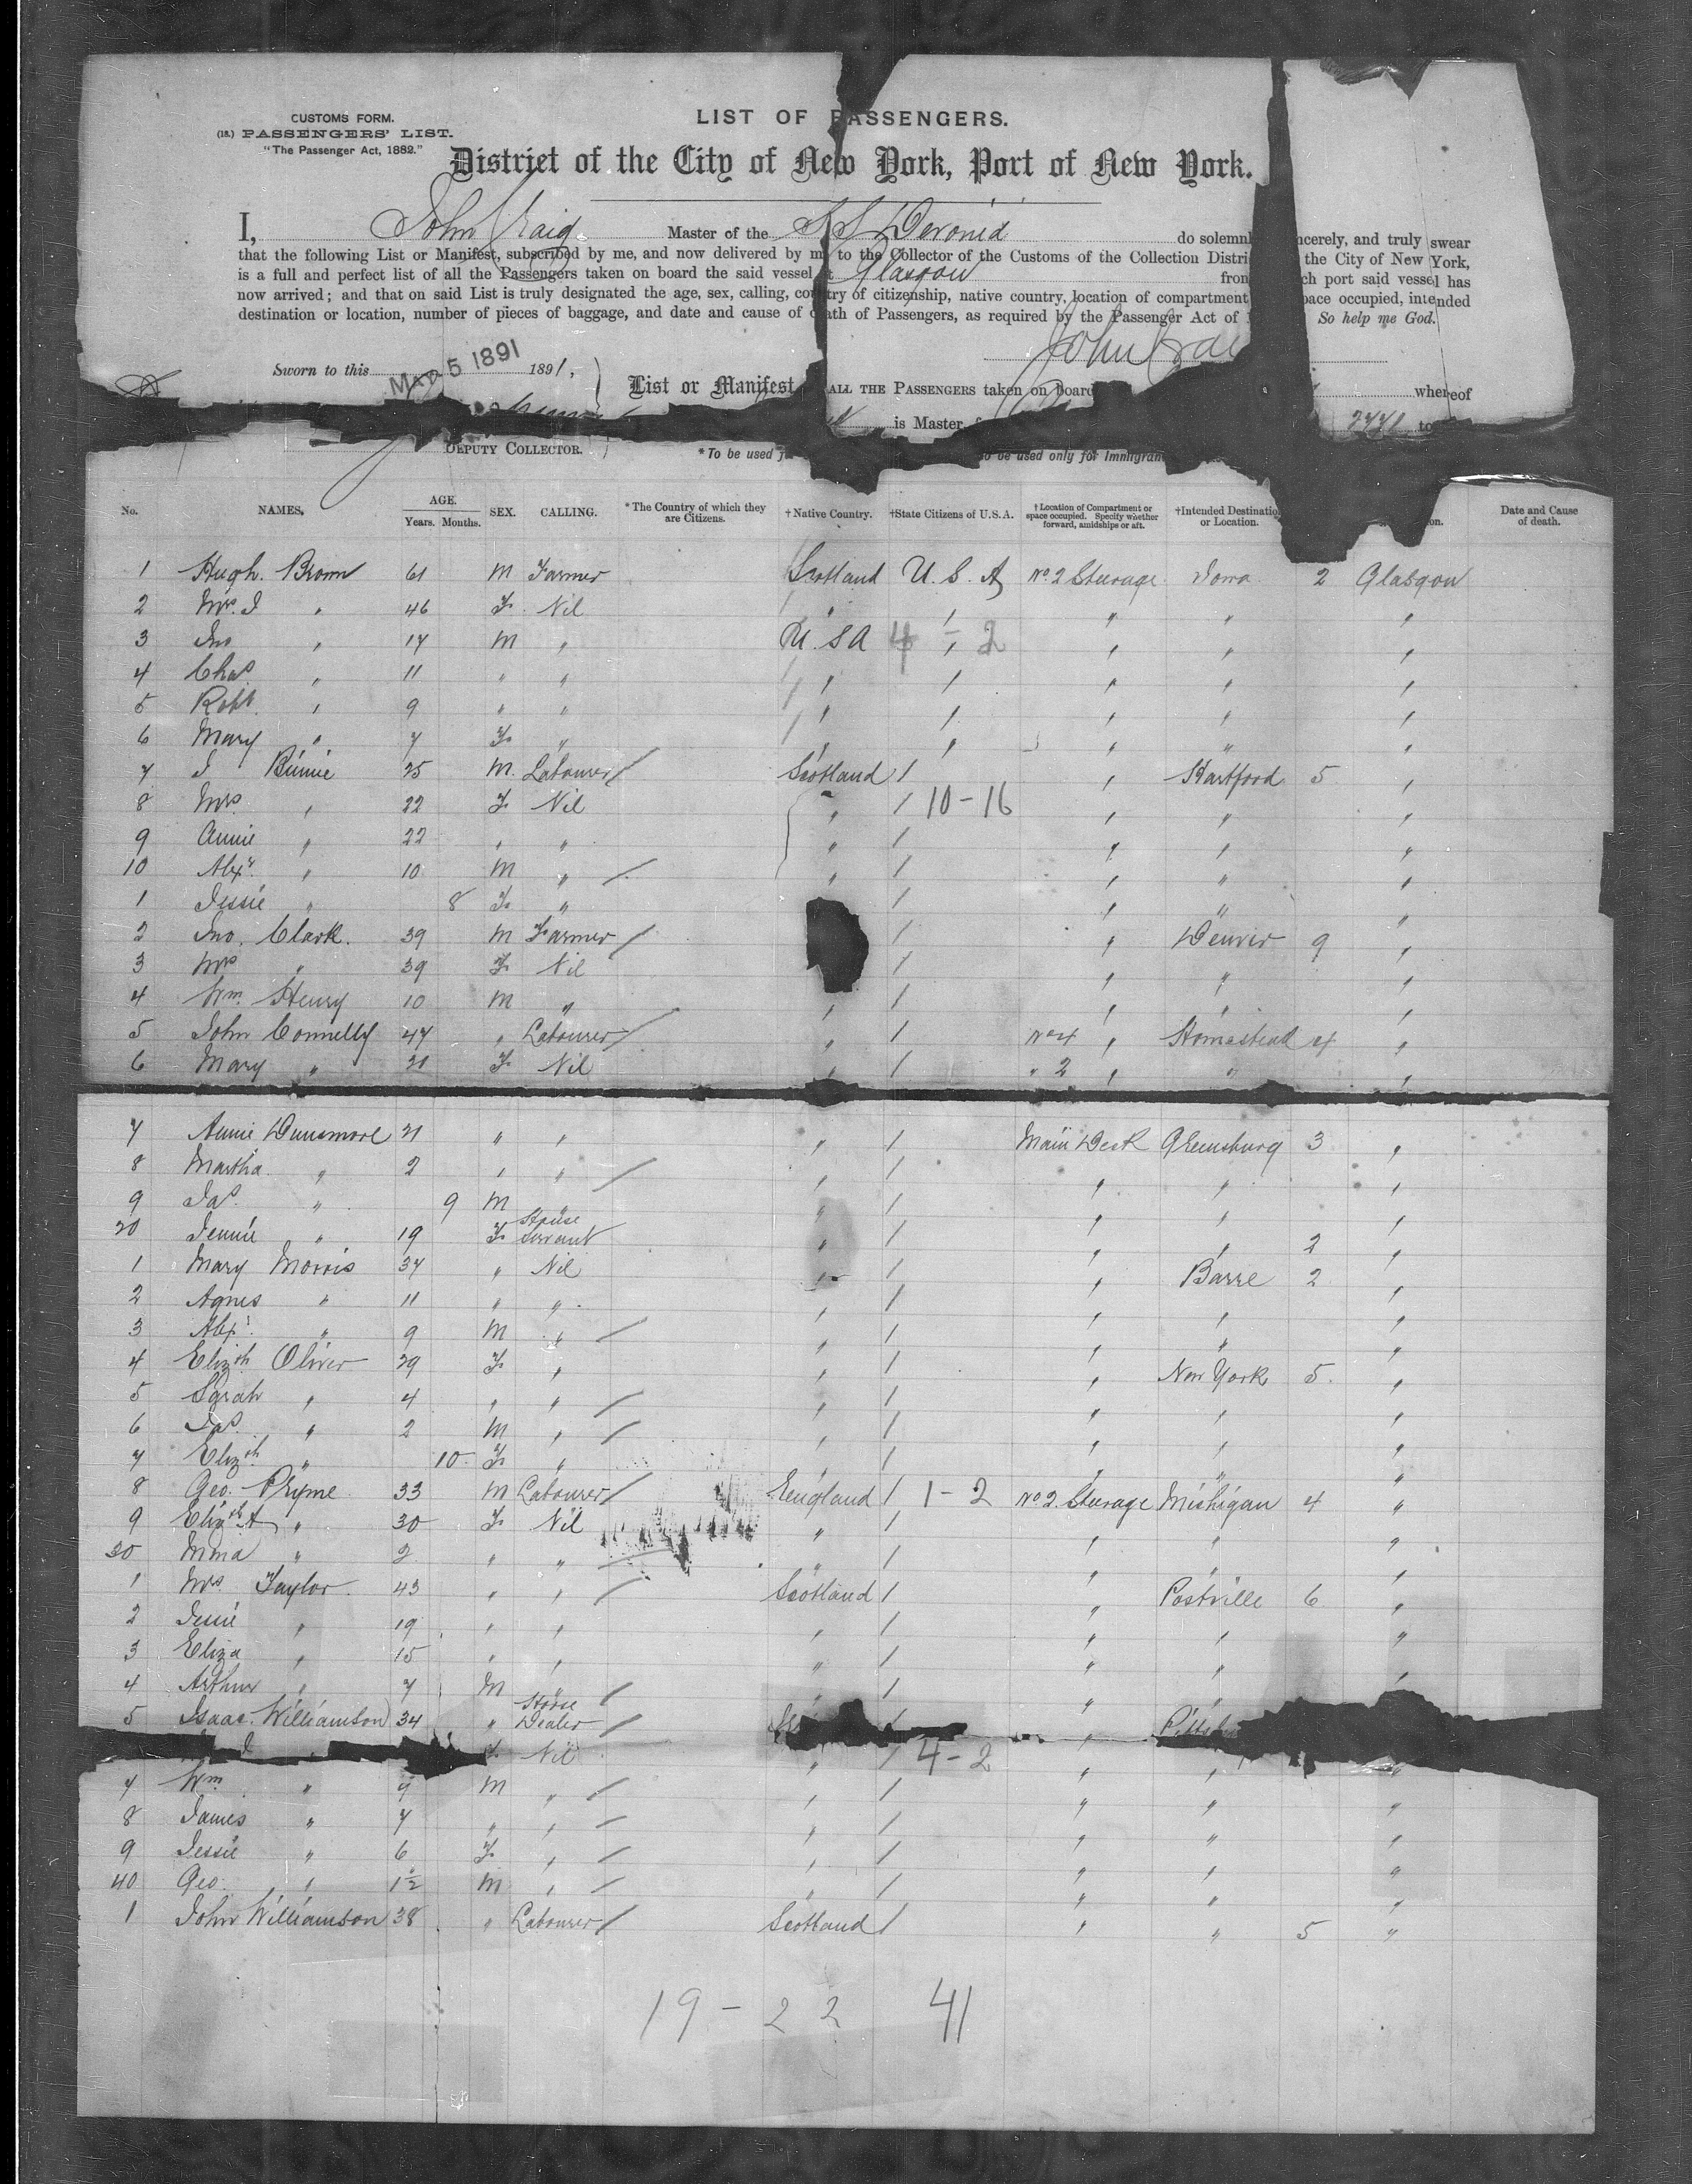 CUSTOMS FORM.
(18.) PASSENGERS' LIST.
"The Passenger Act, 1882."
LIST OF PASSENGERS.
District of the City of New York, Port of New York.
I, John Craig Master of the SS Devonia do solemnl ncerely, and truly swear
that the following List or Manifest, subscribed by me, and now delivered by m to the Collector of the Customs of the Collection Distri the City of New York,
is a full and perfect list of all the Passengers taken on board the said vessel Glasgow fron ch port said vessel has
now arrived; and that on said List is truly designated the age, sex, calling, country of citizenship, native country, location of compartment pace occupied, intended
destination or location, number of pieces of baggage, and date and cause of death of Passengers, as required by the Passenger Act of So help me God.
John Crai
Sworn to this MAR 5 1891 1891,
List or Manifest ALL THE PASSENGERS taken on board whereof
is Master, 2771 to
DEPUTY COLLECTOR.
*To be used f to be used only for Immigran
No. NAMES. AGE. Years. Months. SEX. CALLING. *The Country of which they are Citizens. †Native Country. †State Citizens of U.S.A. †Location of Compartment or space occupied. Specify whether forward, amidships or aft. †Intended Destination or Location. on. Date and Cause of death.
1 Hugh. Brown 61 M Farmer Scotland U. S. A No 2 Sturage Iowa 2 Glasgow
2 Mrs. J " 46 F. Nil " " " " "
3 Jno " 17 M " U. S A 4 - 2 " " "
4 Chas. " 11 " " " " " " "
5 Robt. " 9 " " " " " " "
6 Mary " 7 F. " " " " " "
7 J Binnie 25 M. Labourer / Scotland / " Hartford 5 "
8 Mrs. " 22 F Nil " / 10-16 " " "
9 Annie " 22 " " " / " " "
10 Alexr. " 10 M " / " / " " "
1 Jessie " 8 F. " / " " "
2 Jno. Clark. 39 M Farmer / / " Denver 9 "
3 Mrs " 39 F. Nil / " " "
4 Wm. Henry 10 M " " / " " "
5 John Connelly 47 " Labourer / " / No 4 " Homestead 4 "
6 Mary " 21 F. Nil " / " 2 " " "
7 Annie Dunsmore 21 " " " / Main Deck Greensburg 3 "
8 Martha " 2 " " / " / " " "
9 Jas. " 9 M " " / " " "
20 Jennie " 19 F. House Servant " / " " 2 "
1 Mary Morris 34 " Nil " / " Barre 2 "
2 Agnes " 11 " " " / " " "
3 Alexr. " 9 M " / " / " " "
4 Elizth Oliver 29 F. " " / " New York 5. "
5 Sarah " 4 " " / " / " " "
6 Jas. " 2 M " / " / " " "
7 Elizth " 10. F. " " / " " "
8 Geo. Pryme 33 M Labourer / England / 1-2 No 2 Sturage Michigan 4 "
9 Elizth A " 30 F. Nil " / " " "
30 Mina " 2 " " / " / " " "
1 Mrs. Taylor 43 " " / Scotland / " Postville 6 "
2 Jessie " 19 " " " / " " "
3 Eliza " 15 " " " / " " "
4 Arthur " 7 M " / " / " " "
5 Isaac. Williamson 34 " Horse Dealer / / " Pittsbu
J F. Nil " / 4-2 " " "
7 Wm " 9 M " / " / " " "
8 James " 7 " " / " / " " "
9 Jessie " 6 F. " / " / " " "
40 Geo. " 1½ M " / " / " " "
1 John Williamson 38 " Labourer / Scotland / " " 5 "
19 - 22 41